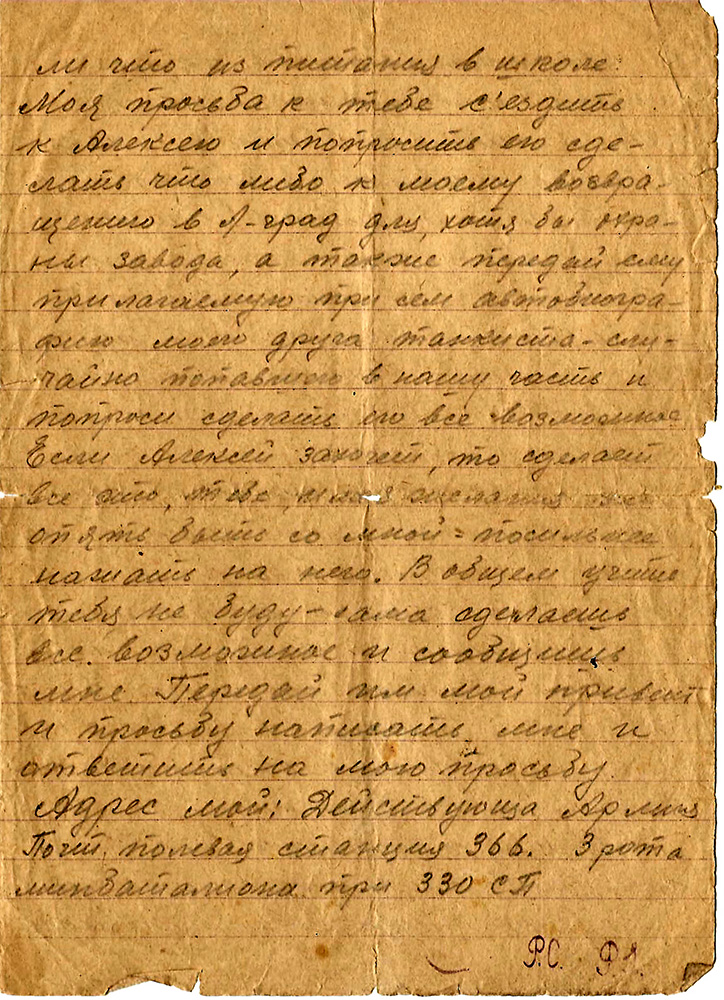 ли что из питания в школе.
Моя просьба к тебе с'ездить
к Алексею и попросить его сде-
лать что либо к моему возвра-
щению в Л-град для, хотя бы охра-
ны завода, а также передай ему
прилагаемую при сем автобиогра-
фию моего друга танкиста - слу-
чайно попавшего в нашу часть и
попроси сделать его все возможное
Если Алексей захочет, то сделает
все это, тебе
опять быть со мной = посильнее
нажать на него. В общем учить
тебя не буду - сама сделаешь
все возможное и сообщишь
мне. Передай им мой привет
и просьбу написать мне и
ответить на мою просьбу.
Адрес мой: Действующа Армия
Почт полевая станция 366. 3 рота
минбаталиона при 330 СП
Р.С.